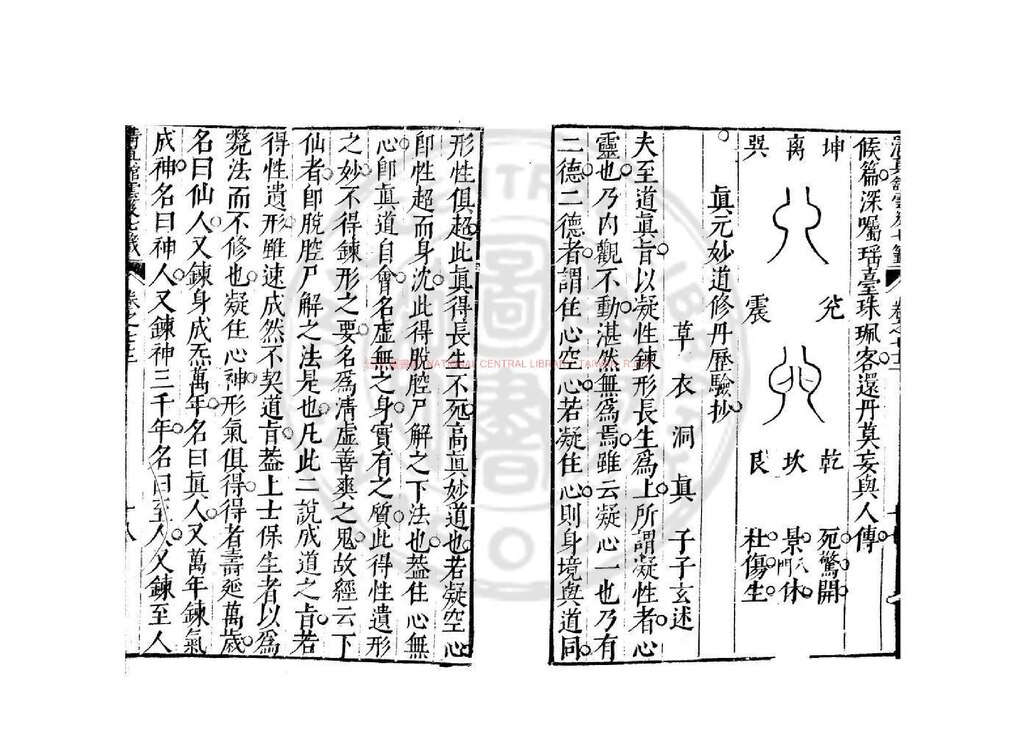 候篇深囑瑶臺珠珮客還丹莫妄與人傳
坤 兊 乾 死驚開
离 坎 景門休
巽 震 艮 杜傷生
眞元妙道修丹歷驗抄
草衣洞眞子子玄述
夫至道眞旨以凝性鍊形長生爲上所謂凝性者心
靈也乃内觀不動湛然無爲焉雖云凝心一也乃有
二德二德者謂住心空心若凝住心則身境與道同
形性俱超此眞得長生不死高眞妙道也若凝空心
卽性超而身沈此得脫腔尸解之下法也葢住心無
心卽眞道自會名虛無之身實有之質此得性遺形
之妙不得鍊形之要名爲清虛善爽之鬼故經云下
仙者卽脫腔尸解之法是也凡此二說成道之旨若
得性遺形雖速成然不契道旨葢上士保生者以爲
斃法而不修也凝住心神形氣俱得得者壽延萬歲
名曰仙人又鍊身成炁萬年名曰眞人又萬年鍊氣
成神名曰神人又鍊神三千年名曰至人又鍊至人
NATIONAL CENTRAL LIBRARY